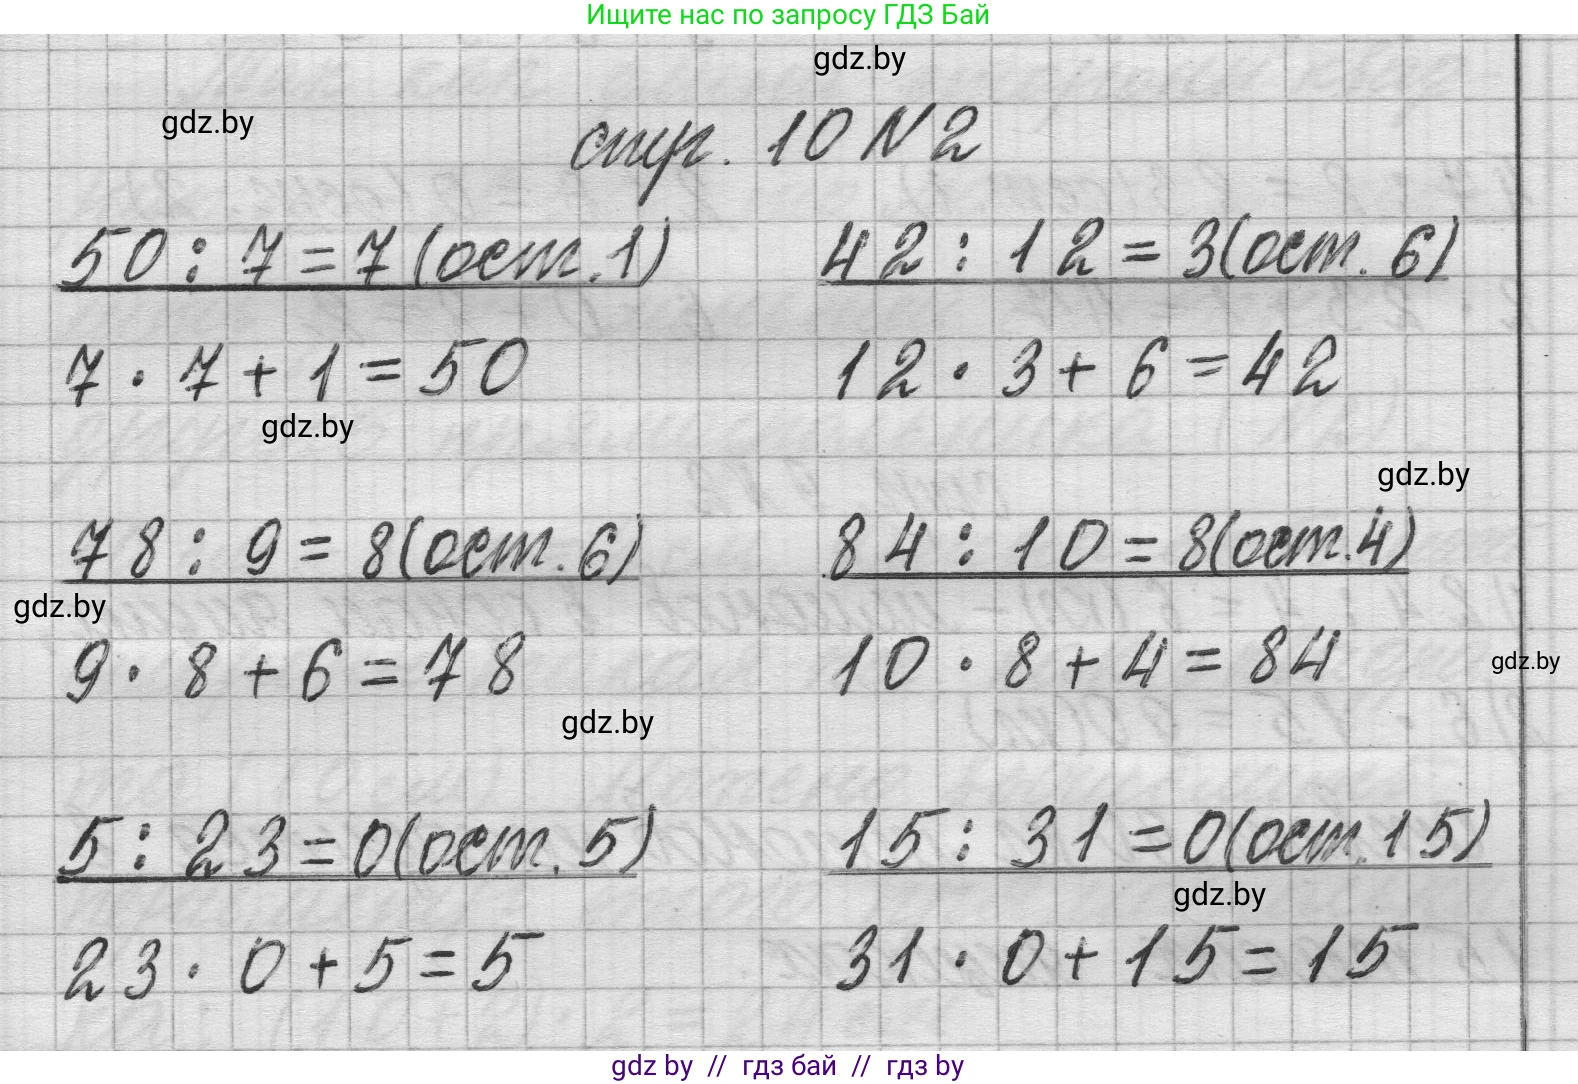 Ищите нас по запросу ГДЗ Бай
gdz.by
gdz.by
стр. 10 N 2
50 : 7 = 7 (ост. 1) 42 : 12 = 3 (ост. 6)
7 · 7 + 1 = 50 12 · 3 + 6 = 42
gdz.by
gdz.by
78 : 9 = 8 (ост. 6) 84 : 10 = 8 (ост. 4)
gdz.by
9 · 8 + 6 = 78 10 · 8 + 4 = 84
gdz.by
gdz.by
5 : 23 = 0 (ост. 5) 15 : 31 = 0 (ост. 15)
gdz.by
23 · 0 + 5 = 5 31 · 0 + 15 = 15
gdz by // гдз бай // гдз by